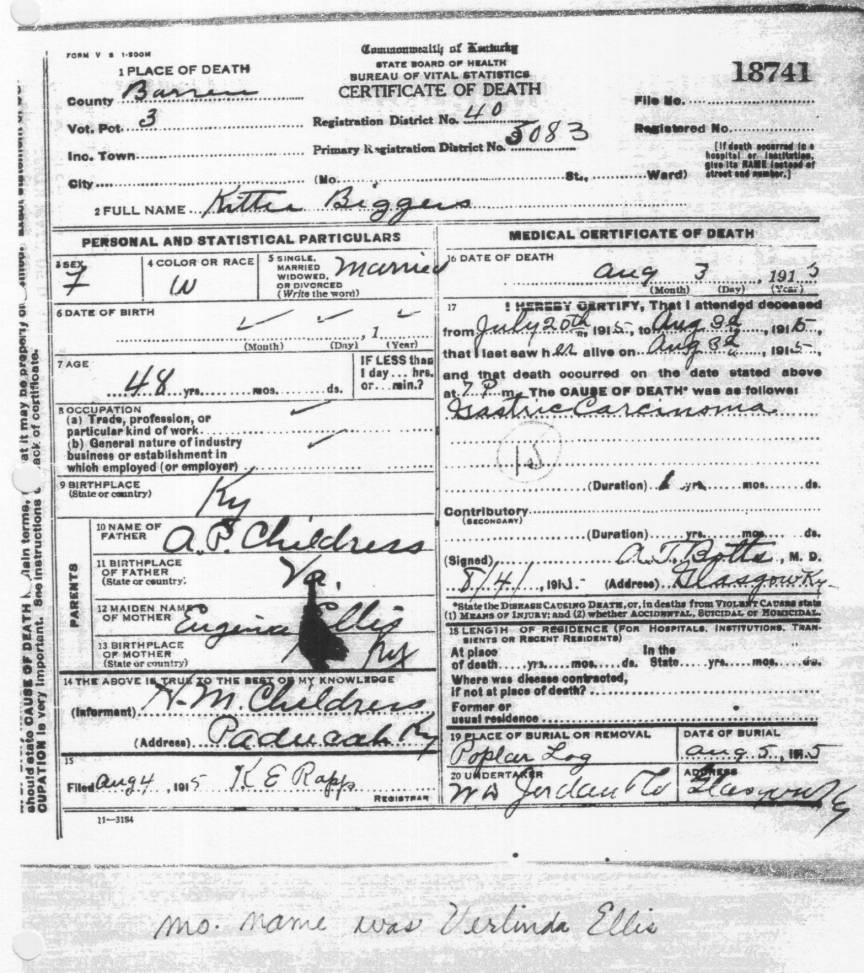 FORM V S 1-500M
Commonwealth of Kentucky
STATE BOARD OF HEALTH
BUREAU OF VITAL STATISTICS
CERTIFICATE OF DEATH
18741
1 PLACE OF DEATH
County Barren
Vot. Pct. 3
Inc. Town
City (No. St., Ward)
Registration District No. 40
Primary Registration District No. 5083
File No.
Registered No.
[If death occurred in a
hospital or institution,
give its NAME instead of
street and number.]
2 FULL NAME Kittie Biggers
PERSONAL AND STATISTICAL PARTICULARS
3 SEX
F
4 COLOR OR RACE
W
5 SINGLE,
MARRIED
WIDOWED,
OR DIVORCED
(Write the word)
Married
6 DATE OF BIRTH
, 1
(Month) (Day) (Year)
7 AGE
48 yrs. mos. ds.
IF LESS than
1 day... hrs.
or... min.?
8 OCCUPATION
(a) Trade, profession, or
particular kind of work
(b) General nature of industry
business or establishment in
which employed (or employer)
9 BIRTHPLACE
(State or country)
Ky
PARENTS
10 NAME OF
FATHER
A.P. Childress
11 BIRTHPLACE
OF FATHER
(State or country)
Va.
12 MAIDEN NAME
OF MOTHER
Eugenia Ellis
13 BIRTHPLACE
OF MOTHER
(State or country)
Ky
14 THE ABOVE IS TRUE TO THE BEST OF MY KNOWLEDGE
(Informant) H.M. Childress
(Address) Paducah Ky
15
Filed Aug 4, 1915 K E Rapp
REGISTRAR
11—3184
MEDICAL CERTIFICATE OF DEATH
16 DATE OF DEATH
Aug 3, 1915
(Month) (Day) (Year)
17 I HEREBY CERTIFY, That I attended deceased
from July 20th 1915, to Aug 3d, 1915,
that I last saw her alive on Aug 3d, 1915,
and that death occurred on the date stated above
at 7 P m. The CAUSE OF DEATH* was as follows:
Gastric Carcinoma
(Duration) 1 yrs. mos. ds.
Contributory
(SECONDARY)
(Duration) yrs. mos. ds.
(Signed) A.T. Botts, M. D.
8/4/, 1915 (Address) Glasgow Ky
*State the DISEASE CAUSING DEATH, or, in deaths from VIOLENT CAUSES state
(1) MEANS OF INJURY; and (2) whether ACCIDENTAL, SUICIDAL OR HOMICIDAL.
18 LENGTH OF RESIDENCE (FOR HOSPITALS, INSTITUTIONS, TRAN-
SIENTS OR RECENT RESIDENTS)
At place In the
of death yrs. mos. ds. State yrs. mos. ds.
Where was disease contracted,
if not at place of death?
Former or
usual residence
19 PLACE OF BURIAL OR REMOVAL
Poplar Log
DATE OF BURIAL
Aug 5, 1915
20 UNDERTAKER
W W Jordan & Co
ADDRESS
Glasgow Ky
should state CAUSE OF DEATH in plain terms, that it may be properly
CUPATION is very important. See instructions back of certificate.
mo. name was Verlinda Ellis